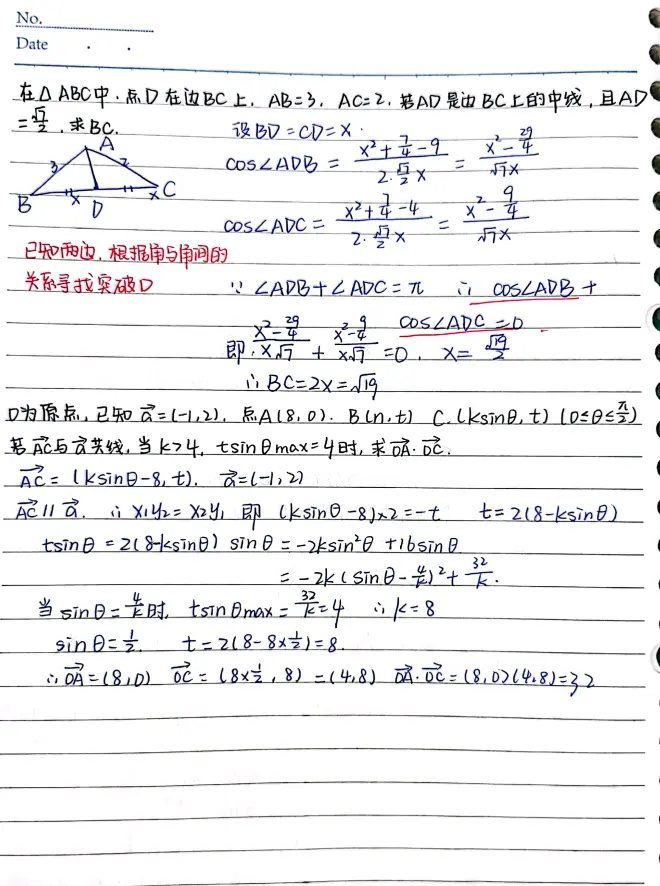 No.
Date . .
在△ABC中.点D在边BC上.AB=3,AC=2.若AD是边BC上的中线,且AD
=√7/2.求BC.
设BD=CD=x.
A
3 2
B x D x C
cos∠ADB = (x²+7/4-9)/(2·√7/2 x) = (x²-29/4)/(√7x)
cos∠ADC = (x²+7/4-4)/(2·√7/2 x) = (x²-9/4)/(√7x)
已知两边,根据角与角间的
关系寻找突破口
∵∠ADB+∠ADC=π ∴cos∠ADB+
cos∠ADC=0
即.(x²-29/4)/(x√7) + (x²-9/4)/(x√7) =0. x=√19/2
∴BC=2x=√19
O为原点,已知a⃗=(-1,2),点A(8,0).B(n,t) C.(ksinθ,t)(0≤θ≤π/2)
若AC⃗与a⃗共线,当k>4,tsinθmax=4时,求OA⃗·OC⃗.
AC⃗=(ksinθ-8,t). a⃗=(-1,2)
AC⃗∥a⃗. ∴x₁y₂=x₂y₁ 即(ksinθ-8)×2=-t t=2(8-ksinθ)
tsinθ=2(8-ksinθ)sinθ=-2ksin²θ+16sinθ
=-2k(sinθ-4/k)²+32/k.
当sinθ=4/k时,tsinθmax=32/k=4 ∴k=8
sinθ=1/2. t=2(8-8×1/2)=8.
∴OA⃗=(8,0) OC⃗=(8×1/2,8)=(4,8) OA⃗·OC⃗=(8,0)(4,8)=32